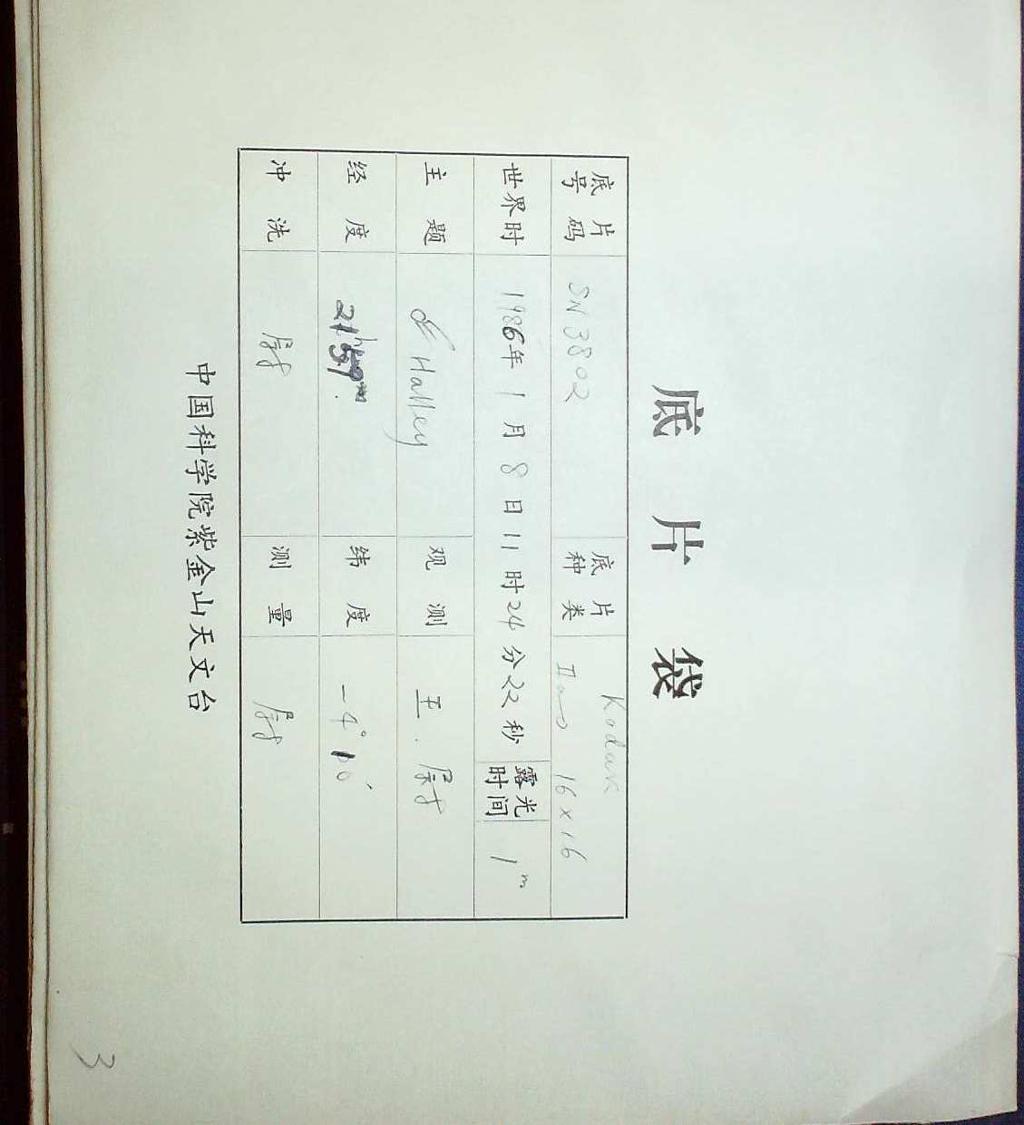 底片袋
底片号码 SN3802 底片种类 Kodak IIa-O 16×16
世界时 1986年1月8日11时24分22秒 露光时间 1m
主题 Halley 观测 王.尉
经度 21h59m 纬度 -4°10′
冲洗 尉 测量 尉
中国科学院紫金山天文台
3